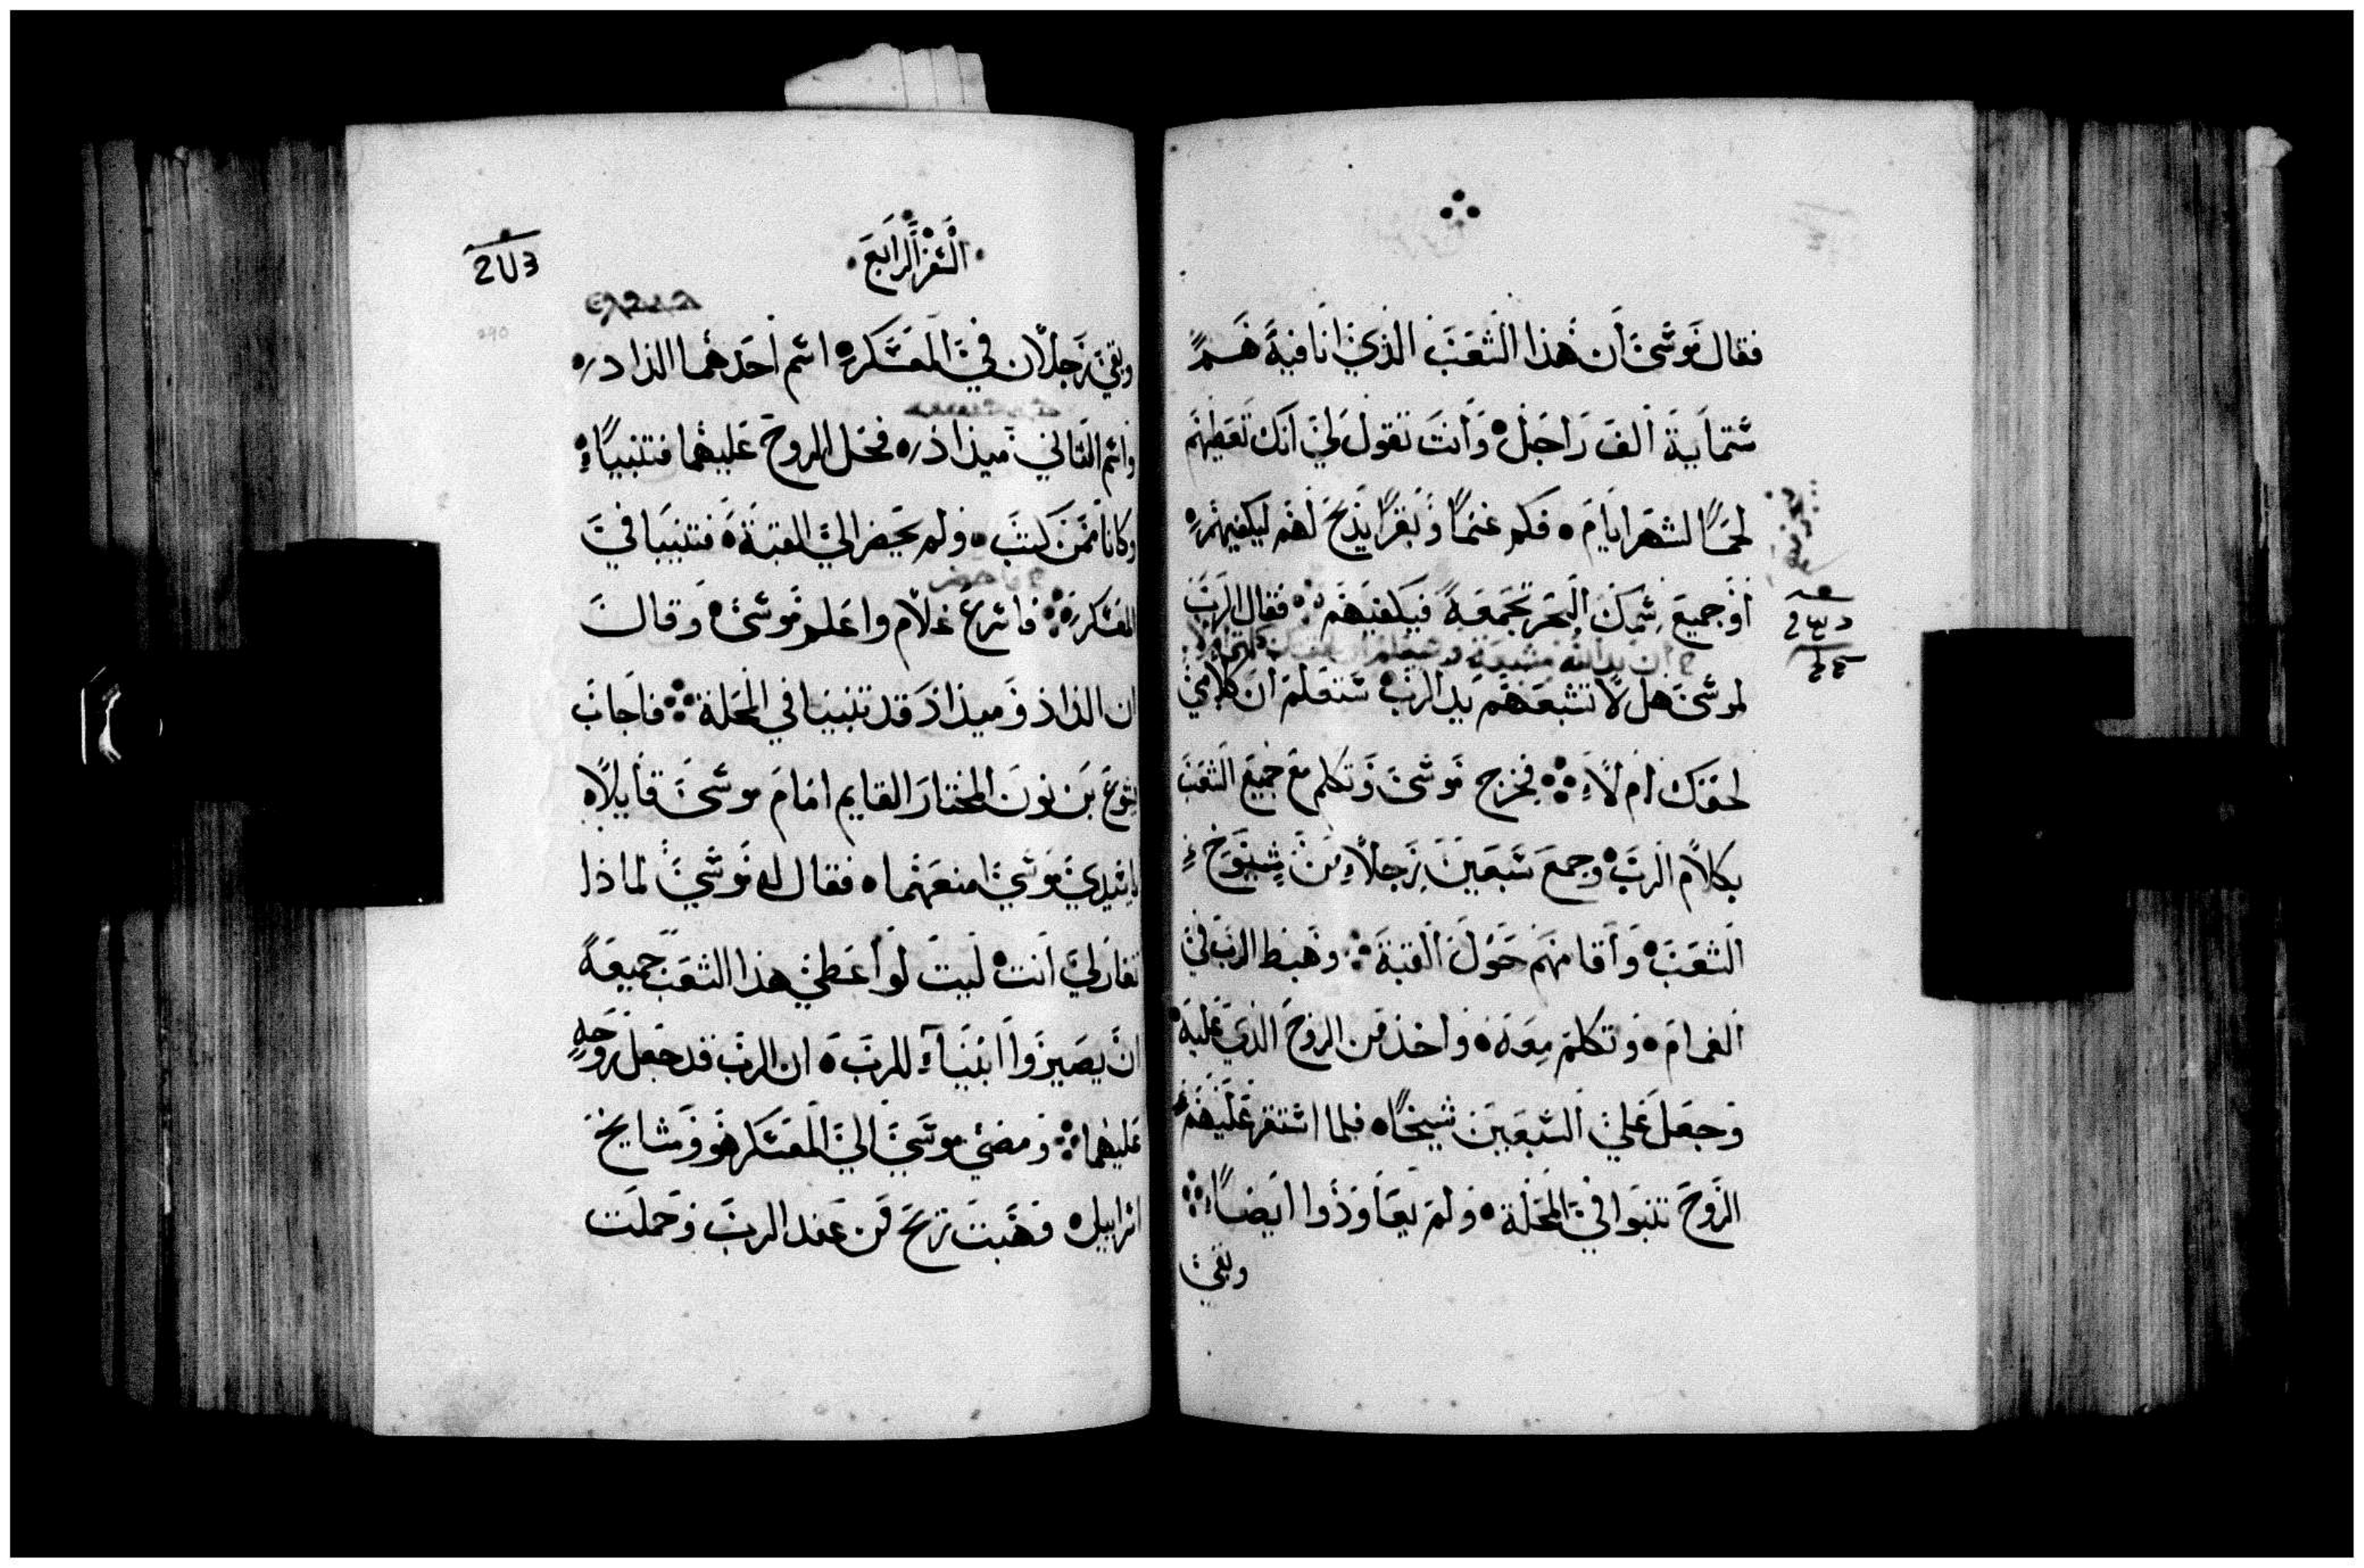 فقال موسى أن هذا الشعب الذي أنا فيه هم
ستماية ألف راجل وأنت تقول لي أنك تعطيهم
لحمًا لشهر أيام فكم غنمًا وبقرًا يذبح لهم ليكفيهم
أو جميع سمك البحر تجمعه فيكفيهم فقال الرب
لموسى هل لا تشبعهم يد الرب ستعلم أن كلامي
لحقك أم لا فخرج موسى وتكلم مع جميع الشعب
بكلام الرب وجمع سبعين رجلًا من شيوخ
الشعب وأقامهم حول القبة وهبط الرب في
الغمام وتكلم معه وأخذ من الروح الذي عليه
وجعل على السبعين شيخًا فلما استقر عليهم
الروح تنبوا في المحلة ولم يعاودوا أيضًا
وبقي
السفر الرابع
وبقي رجلان في المعسكر اسم أحدهما الداد
واسم الثاني ميداد فحل الروح عليهما فتنبيا
وكانا ممن كتب ولم يحضر الي القبة فتنبيا في
المعسكر فاسرع غلام واعلم موسى وقال
ان الداد وميداد قد تنبيا في المحلة فاجاب
يشوع بن نون المختار القايم امام موسى قايلًا
يا سيدي موسي امنعهما فقال له موسي لماذا
تغار لي أنت ليت لو أعطي هذا الشعب جميعه
ان يصيروا انبياء للرب ان الرب قد جعل روحه
عليهما ومضي موسي الي المعسكر هو ومشايخ
اسراييل وهبت ريح من عند الرب وحملت